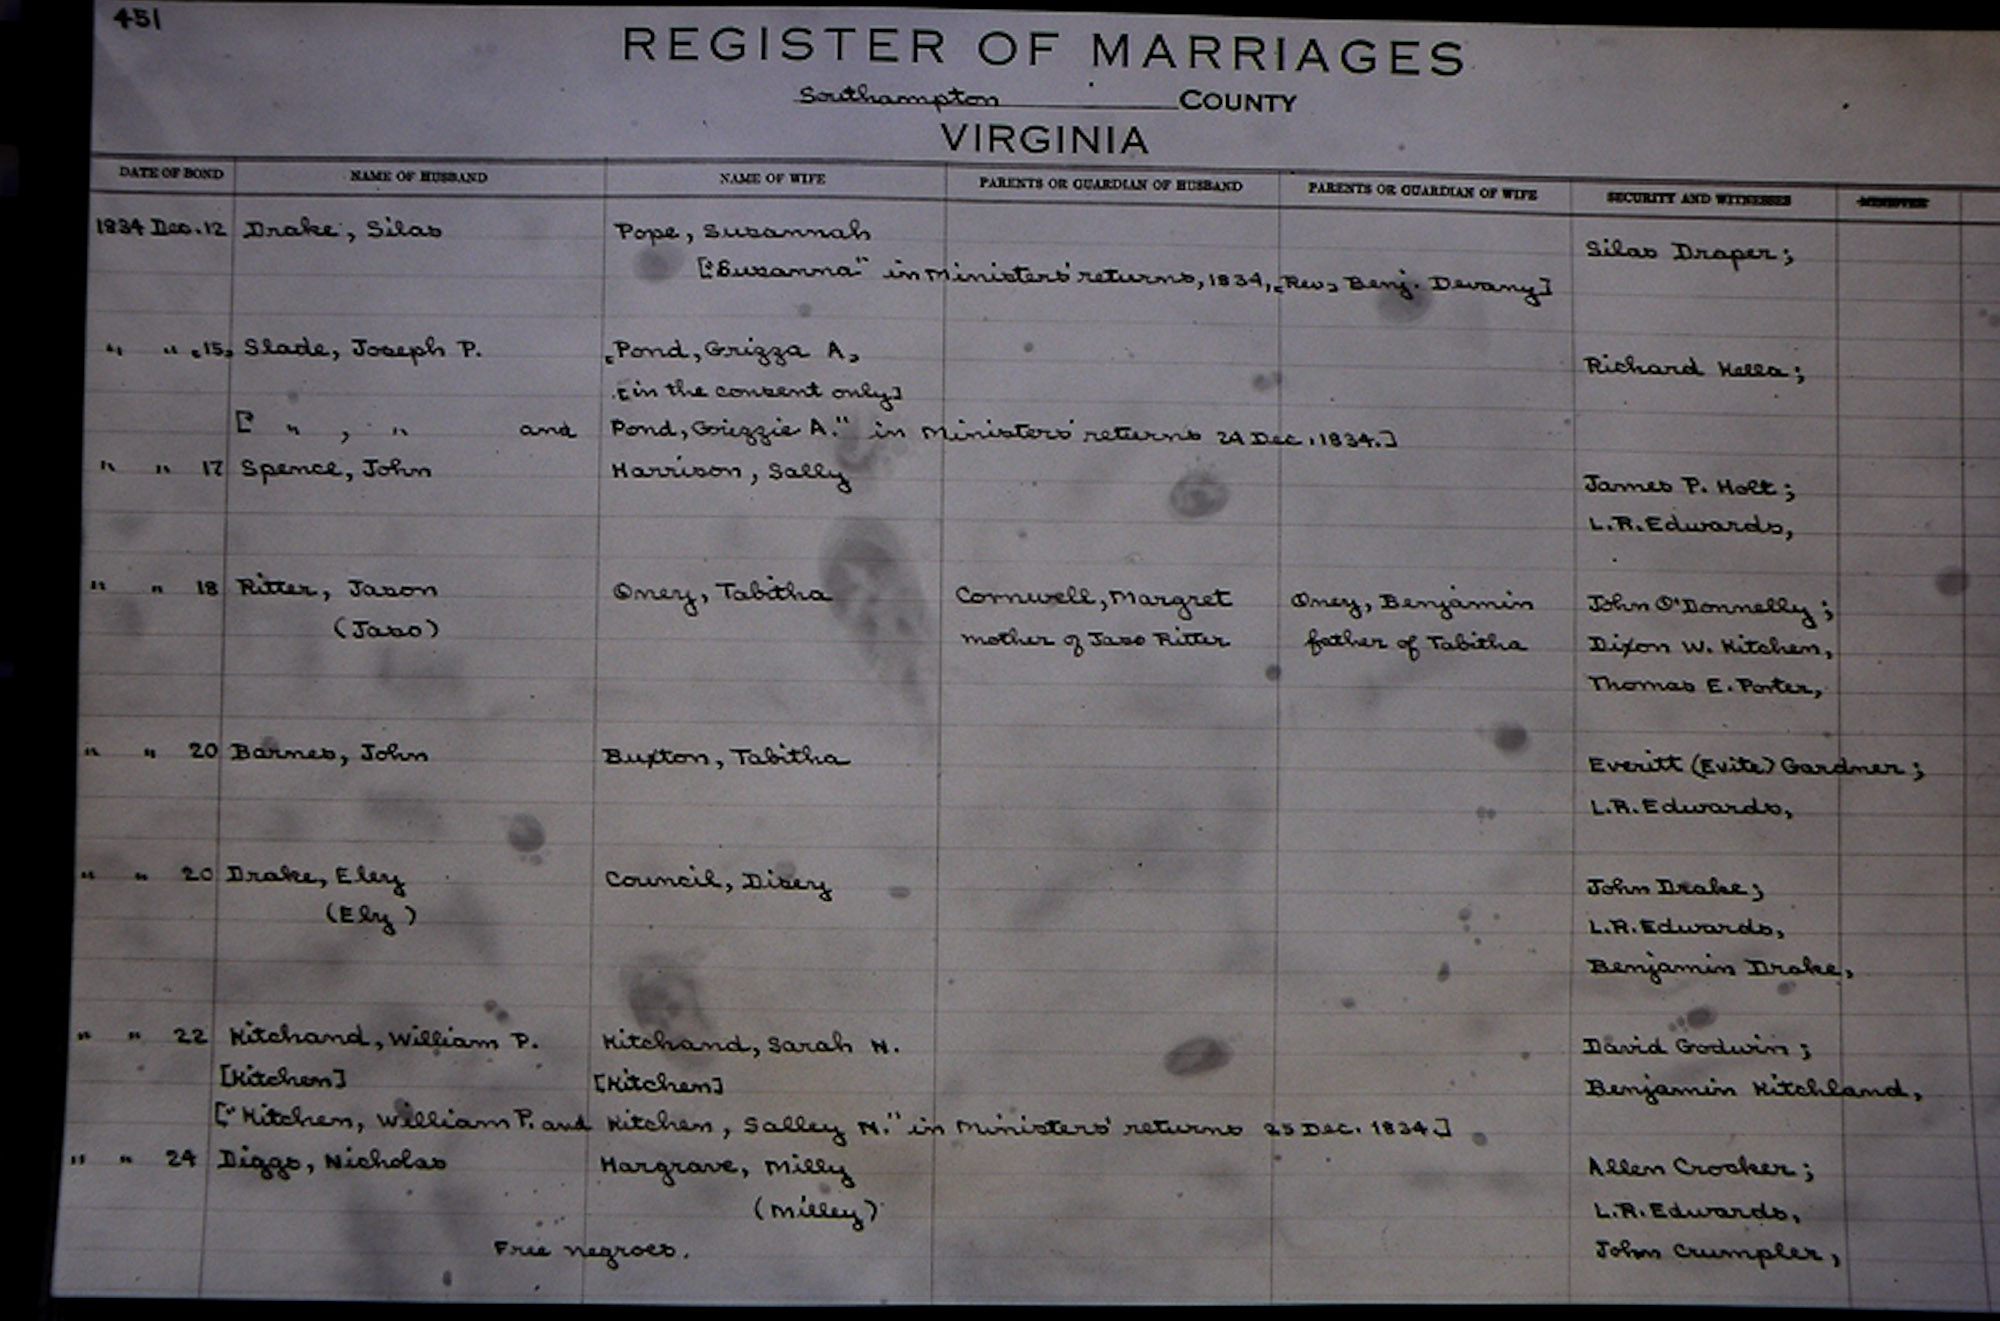 451
REGISTER OF MARRIAGES
Southampton COUNTY
VIRGINIA
DATE OF BOND NAME OF HUSBAND NAME OF WIFE PARENTS OR GUARDIAN OF HUSBAND PARENTS OR GUARDIAN OF WIFE SECURITY AND WITNESSES MINISTER
1834 Dec. 12 Drake, Silas Pope, Susannah Silas Draper;
["Susanna" in Ministers' returns, 1834, [Rev] Benj. Devany]
" " [15] Slade, Joseph P. [Pond, Grizza A.] Richard Hella;
[in the consent only]
[" " , " and Pond, Grizzie A." in Ministers' returns 24 Dec. 1834.]
" " 17 Spence, John Harrison, Sally James P. Holt;
L.R. Edwards,
" " 18 Ritter, Jason Oney, Tabitha Cornwell, Margret Oney, Benjamin John O'Donnelly;
(Jaso) mother of Jaso Ritter father of Tabitha Dixon W. Kitchen,
Thomas E. Porter,
" " 20 Barnes, John Buxton, Tabitha Everitt (Evite) Gardner;
L.R. Edwards,
" " 20 Drake, Eley Council, Disey John Drake;
(Ely) L.R. Edwards,
Benjamin Drake,
" " 22 Kitchand, William P. Kitchand, Sarah N. David Godwin;
[Kitchen] [Kitchen] Benjamin Kitchland,
["Kitchen, William P. and Kitchen, Salley N." in Ministers' returns 25 Dec. 1834]
" " 24 Diggs, Nicholas Hargrave, Milly Allen Crocker;
(Milley) L.R. Edwards,
Free negroes. John Crumpler,